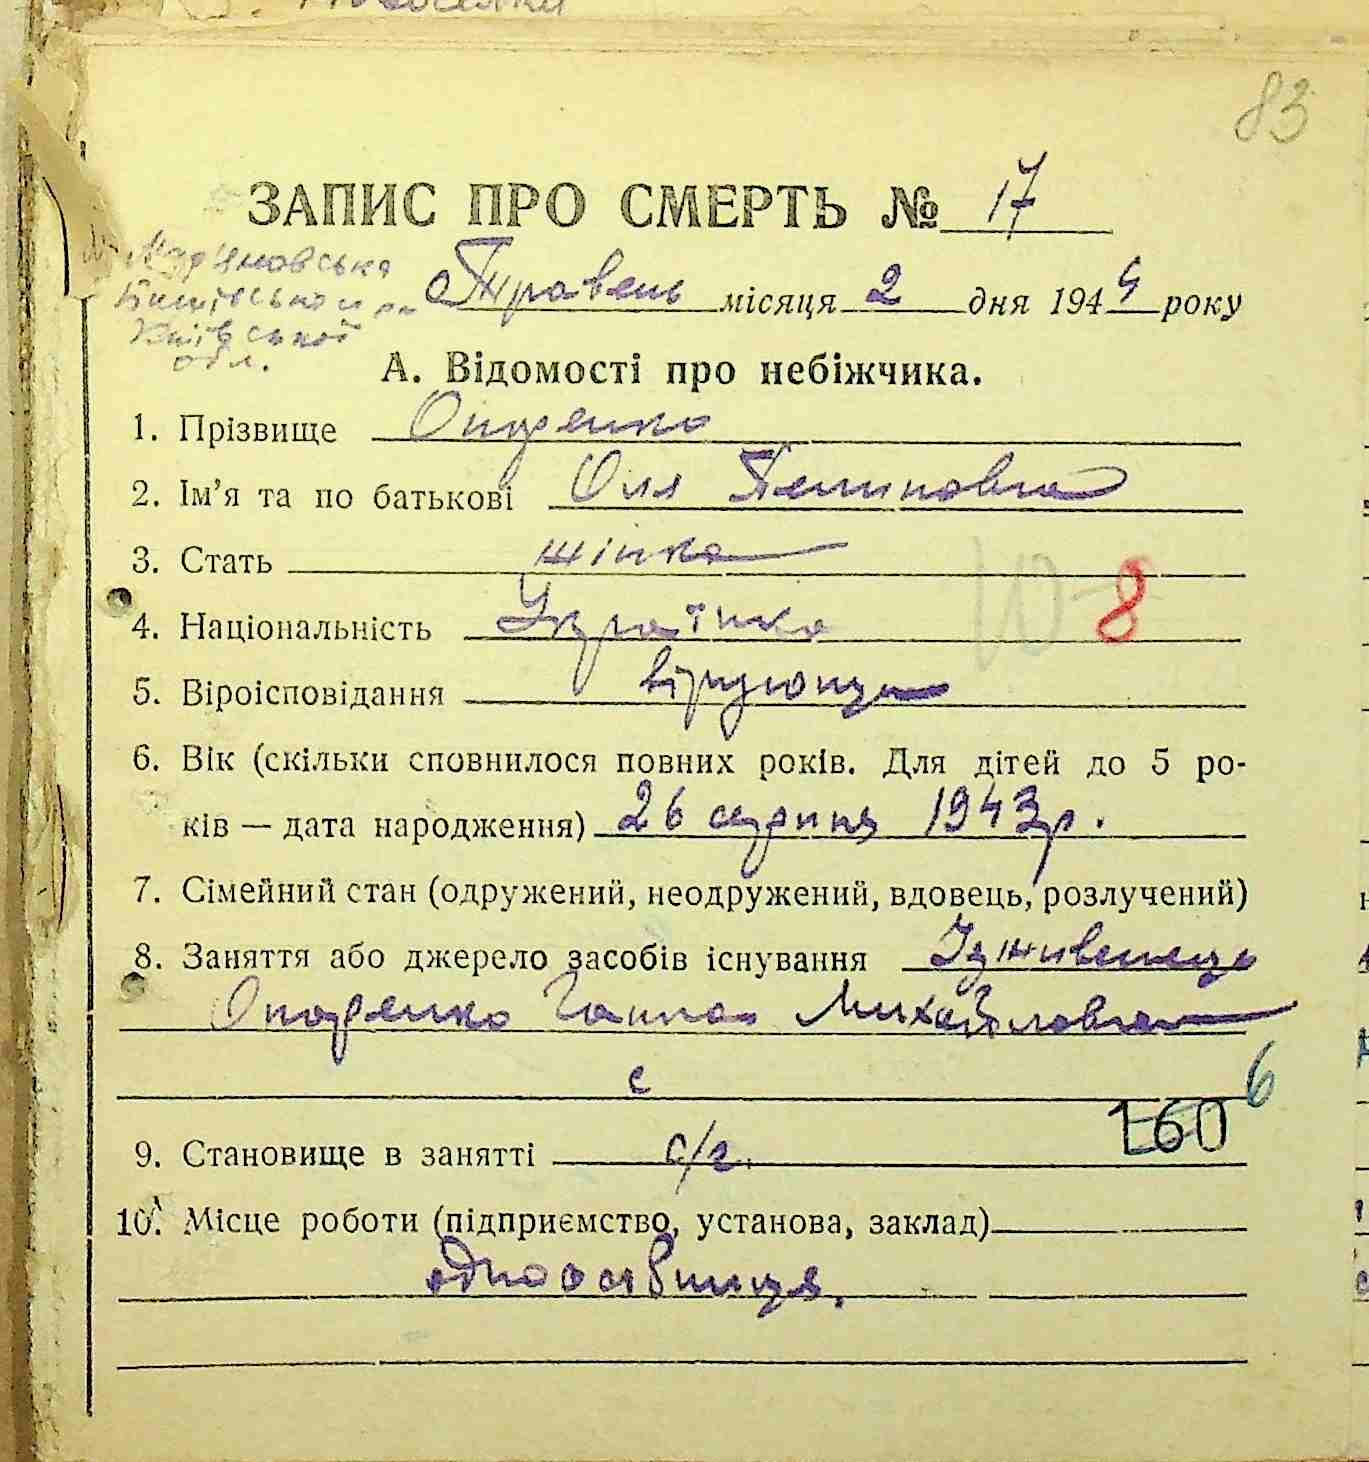 83
ЗАПИС ПРО СМЕРТЬ № 17
Травень місяця 2 дня 1944 року
Київської
обл.
А. Відомості про небіжчика.
1. Прізвище
2. Ім’я та по батькові Оля
3. Стать жінка
4. Національність Українка 8
5. Віроісповідання віруюча
6. Вік (скільки сповнилося повних років. Для дітей до 5 ро-
ків — дата народження) 26 серпня 1943 р.
7. Сімейний стан (одружений, неодружений, вдовець, розлучений)
8. Заняття або джерело засобів існування
Ганна Михайловна
с 6
160
9. Становище в занятті с/г.
10. Місце роботи (підприємство, установа, заклад)
одноосібниця.